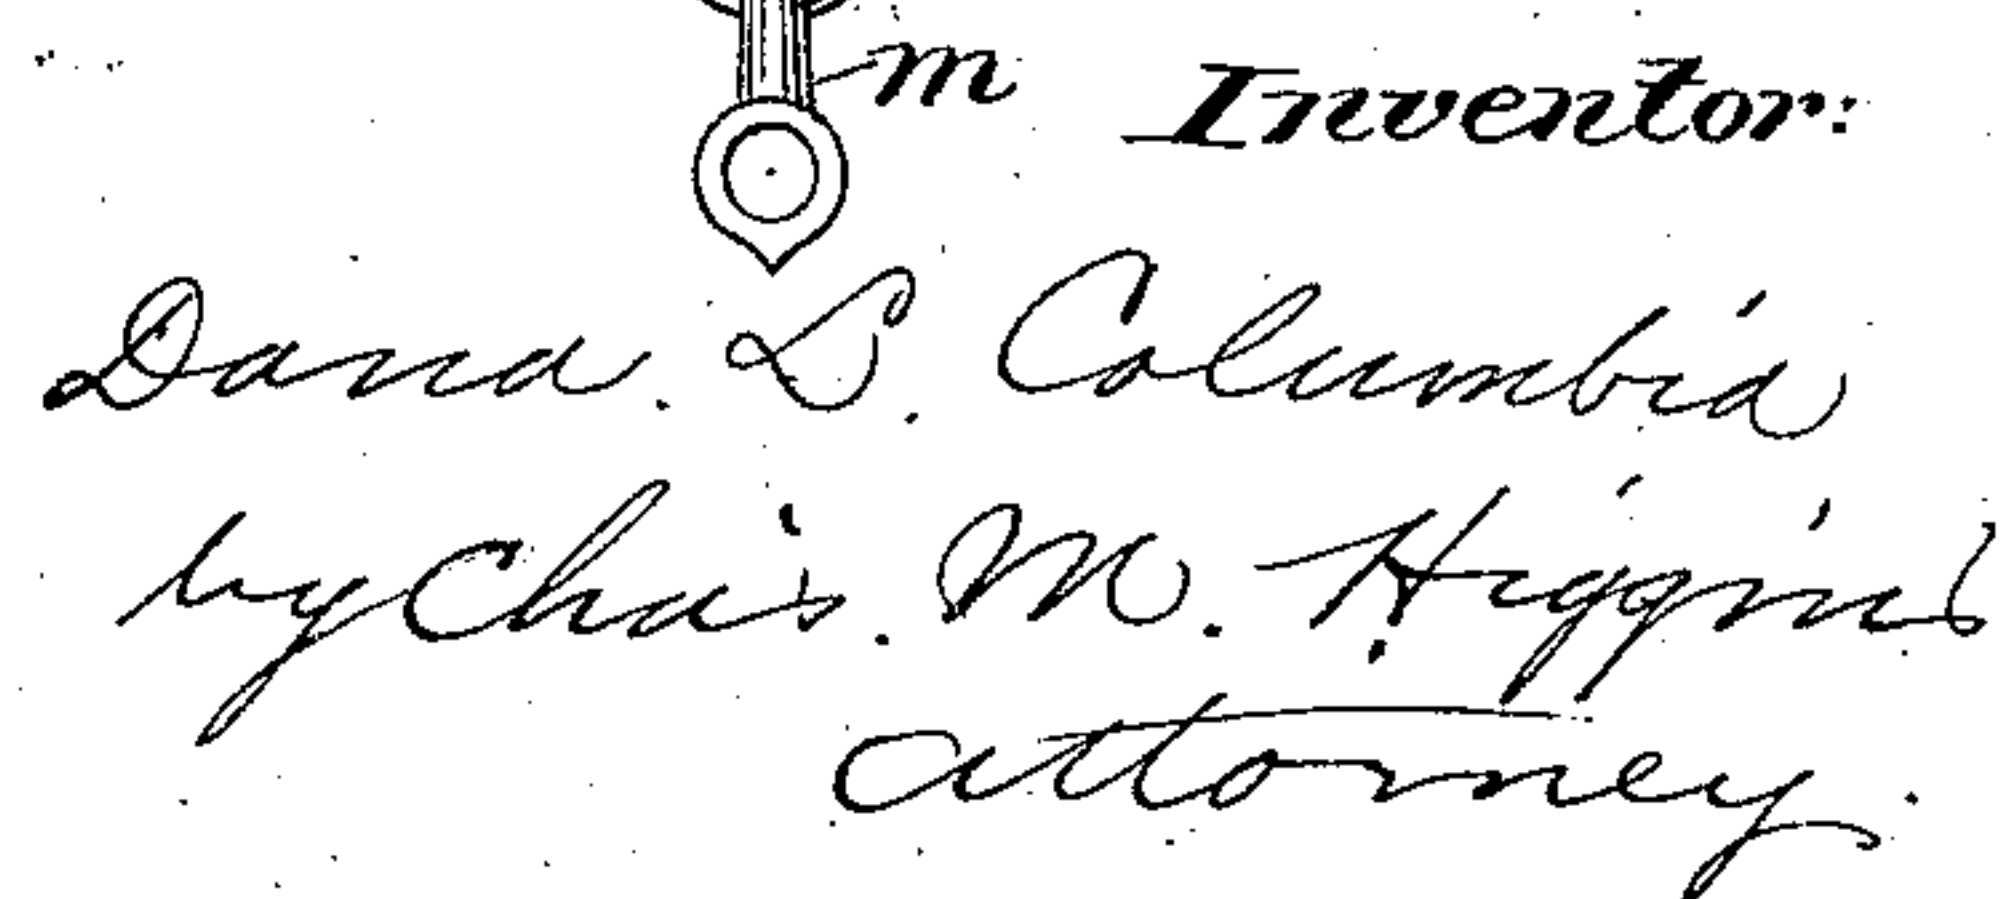 m
Inventor:
Dana. L. Columbia
by Chas. M. Higgins
attorney.